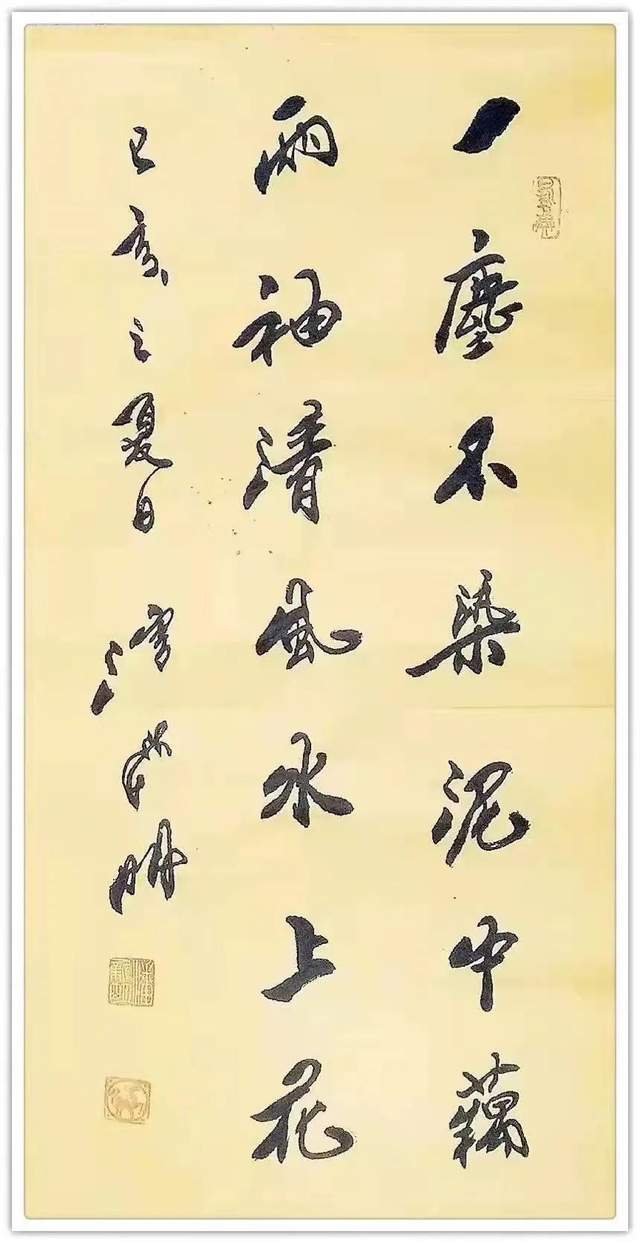 一塵不染泥中藕
兩袖清風水上花
己亥之夏日